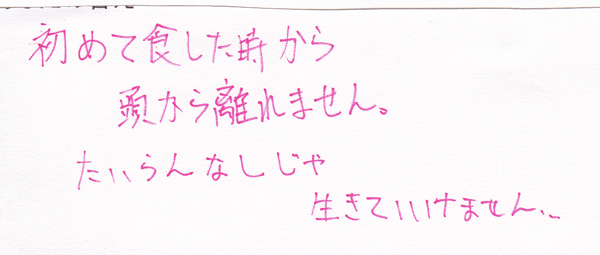 初めて食した時から
頭から離れません。
たいらんなしじゃ
生きていけません、、